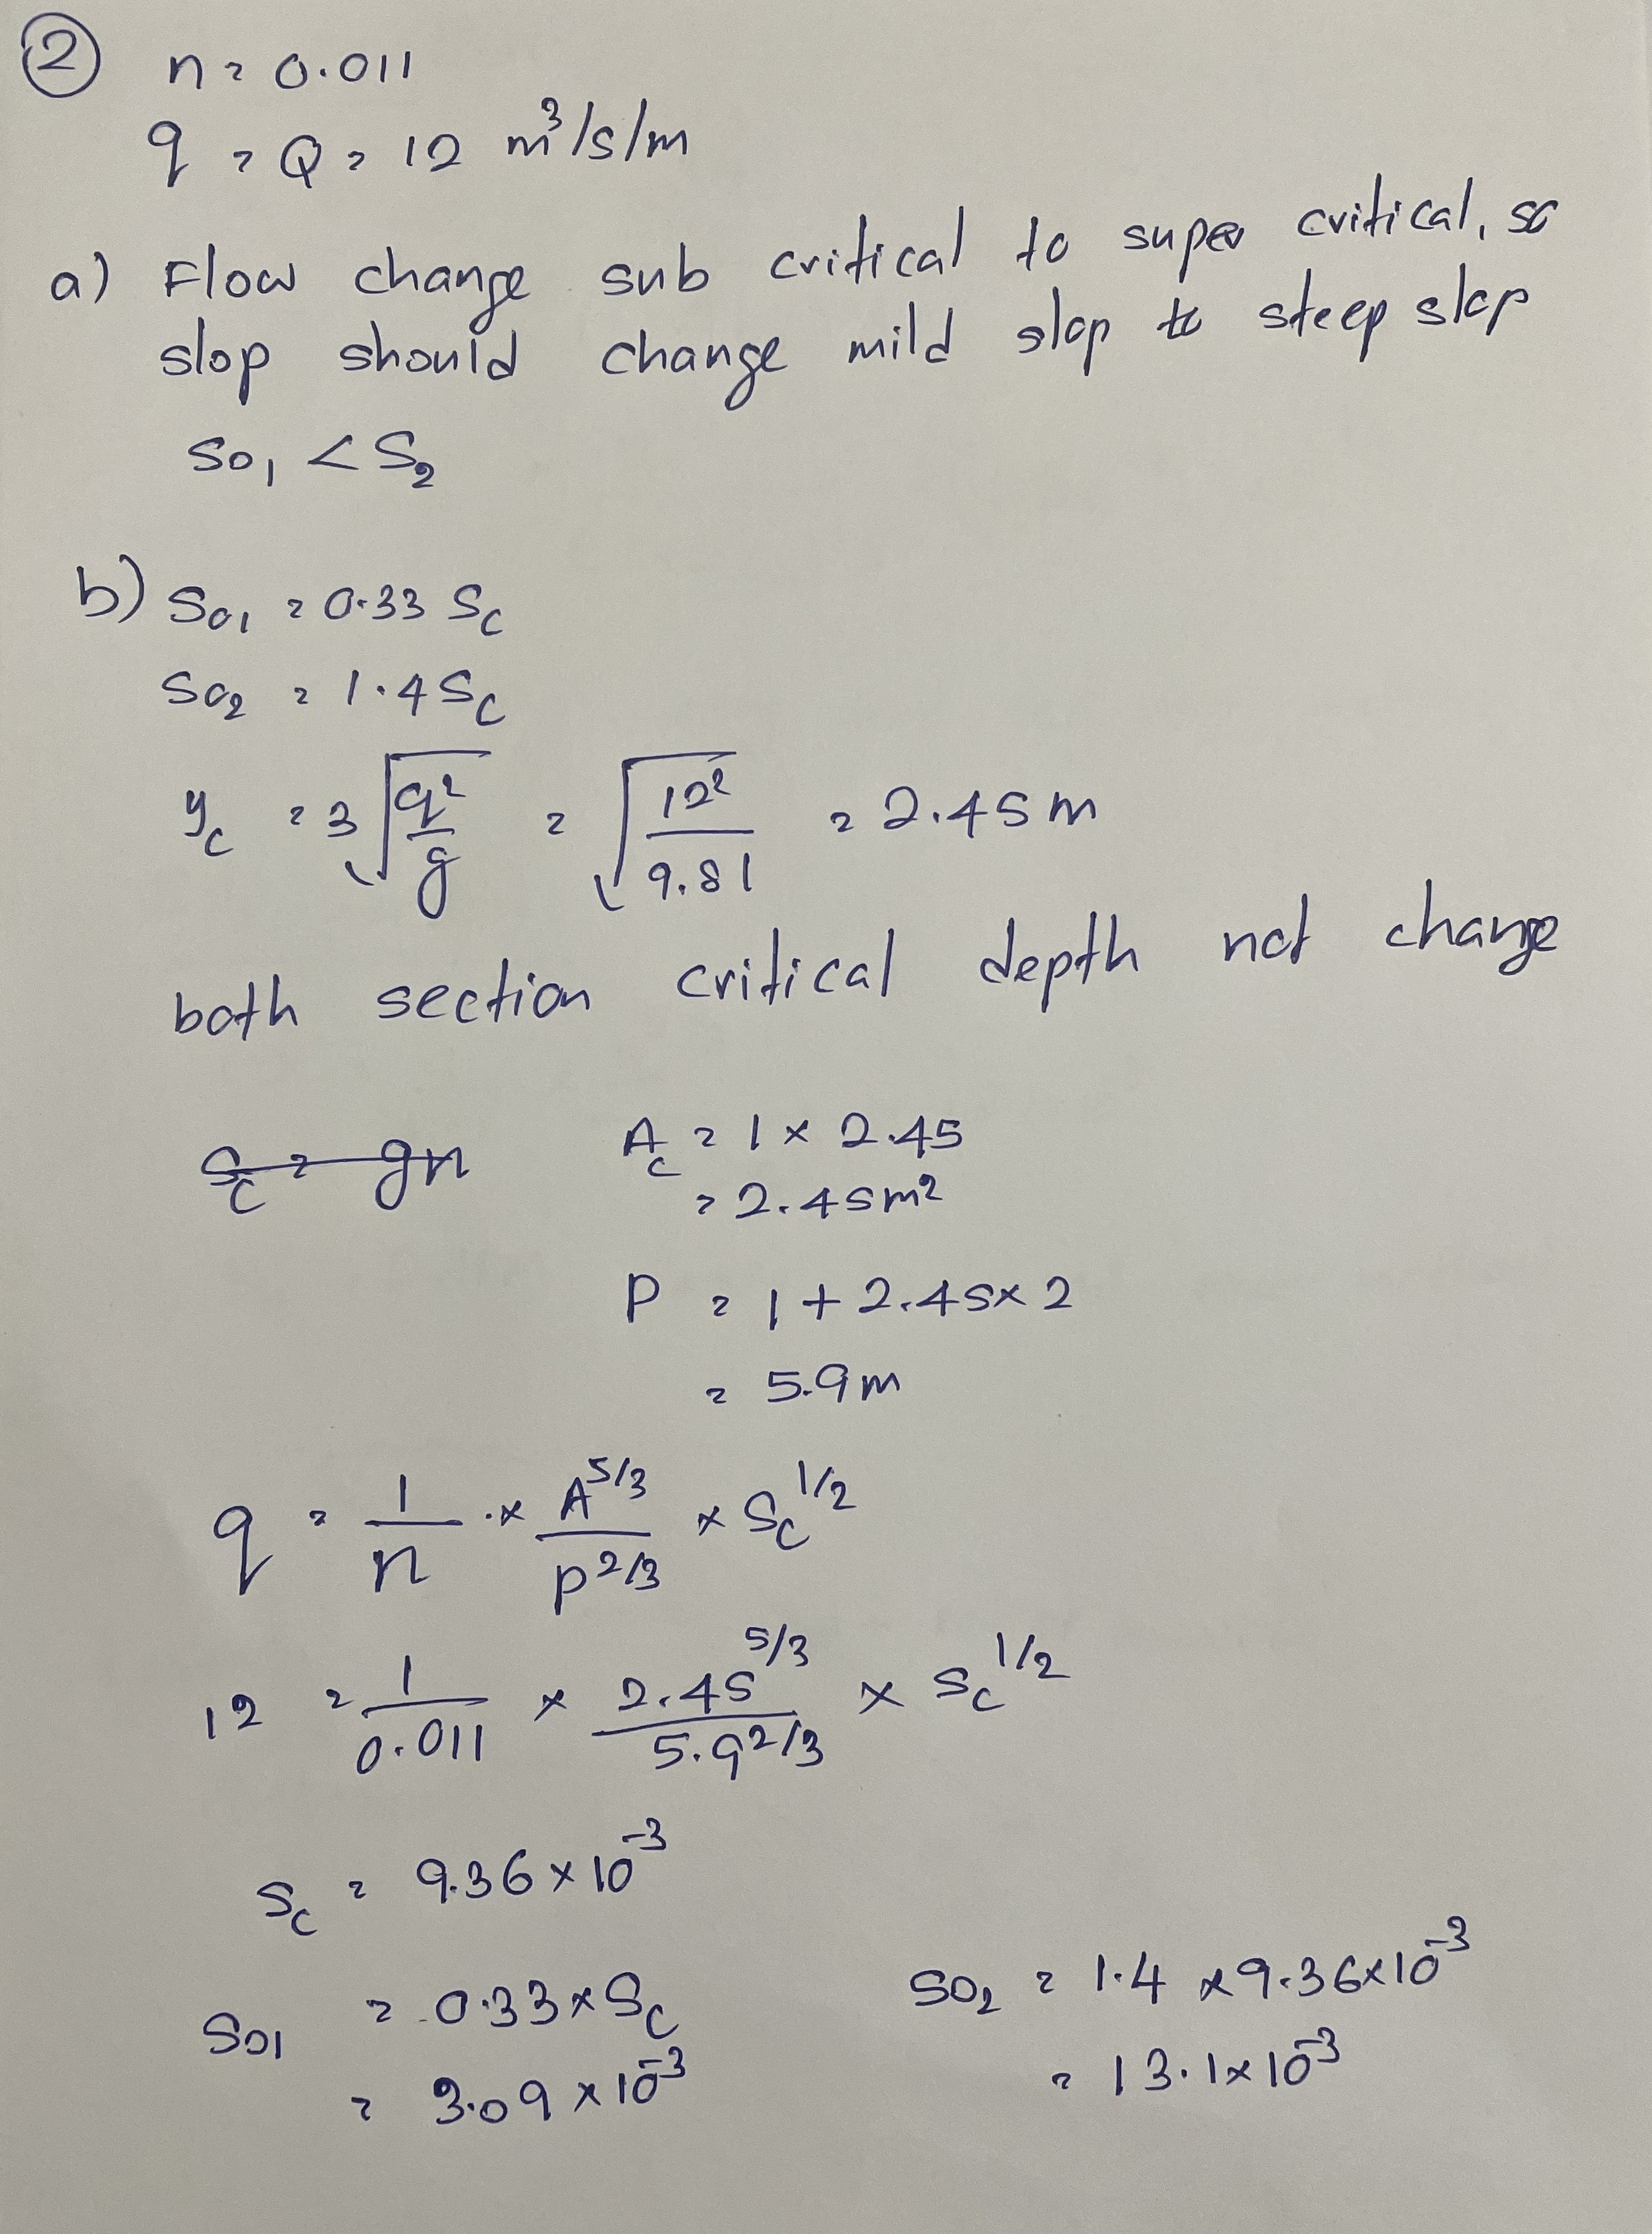 ② n = 0.011
q = Q = 12 m³/s/m
a) Flow change sub critical to super critical, so
slop should change mild slop to steep slop
So₁ < S₂
b) So₁ = 0.33 Sc
So₂ = 1.4 Sc
yc = 3√(q²/g) = √(12²/9.81) = 2.45 m
both section critical depth not change
Sc = gn Ac = 1 × 2.45
= 2.45 m²
P = 1 + 2.45 × 2
= 5.9 m
q = 1/n × A^5/3 / P^2/3 × Sc^1/2
12 = 1/0.011 × 2.45^5/3 / 5.9^2/3 × Sc^1/2
Sc = 9.36 × 10⁻³
So1 = 0.33 × Sc So₂ = 1.4 × 9.36 × 10⁻³
= 3.09 × 10⁻³ = 13.1 × 10⁻³